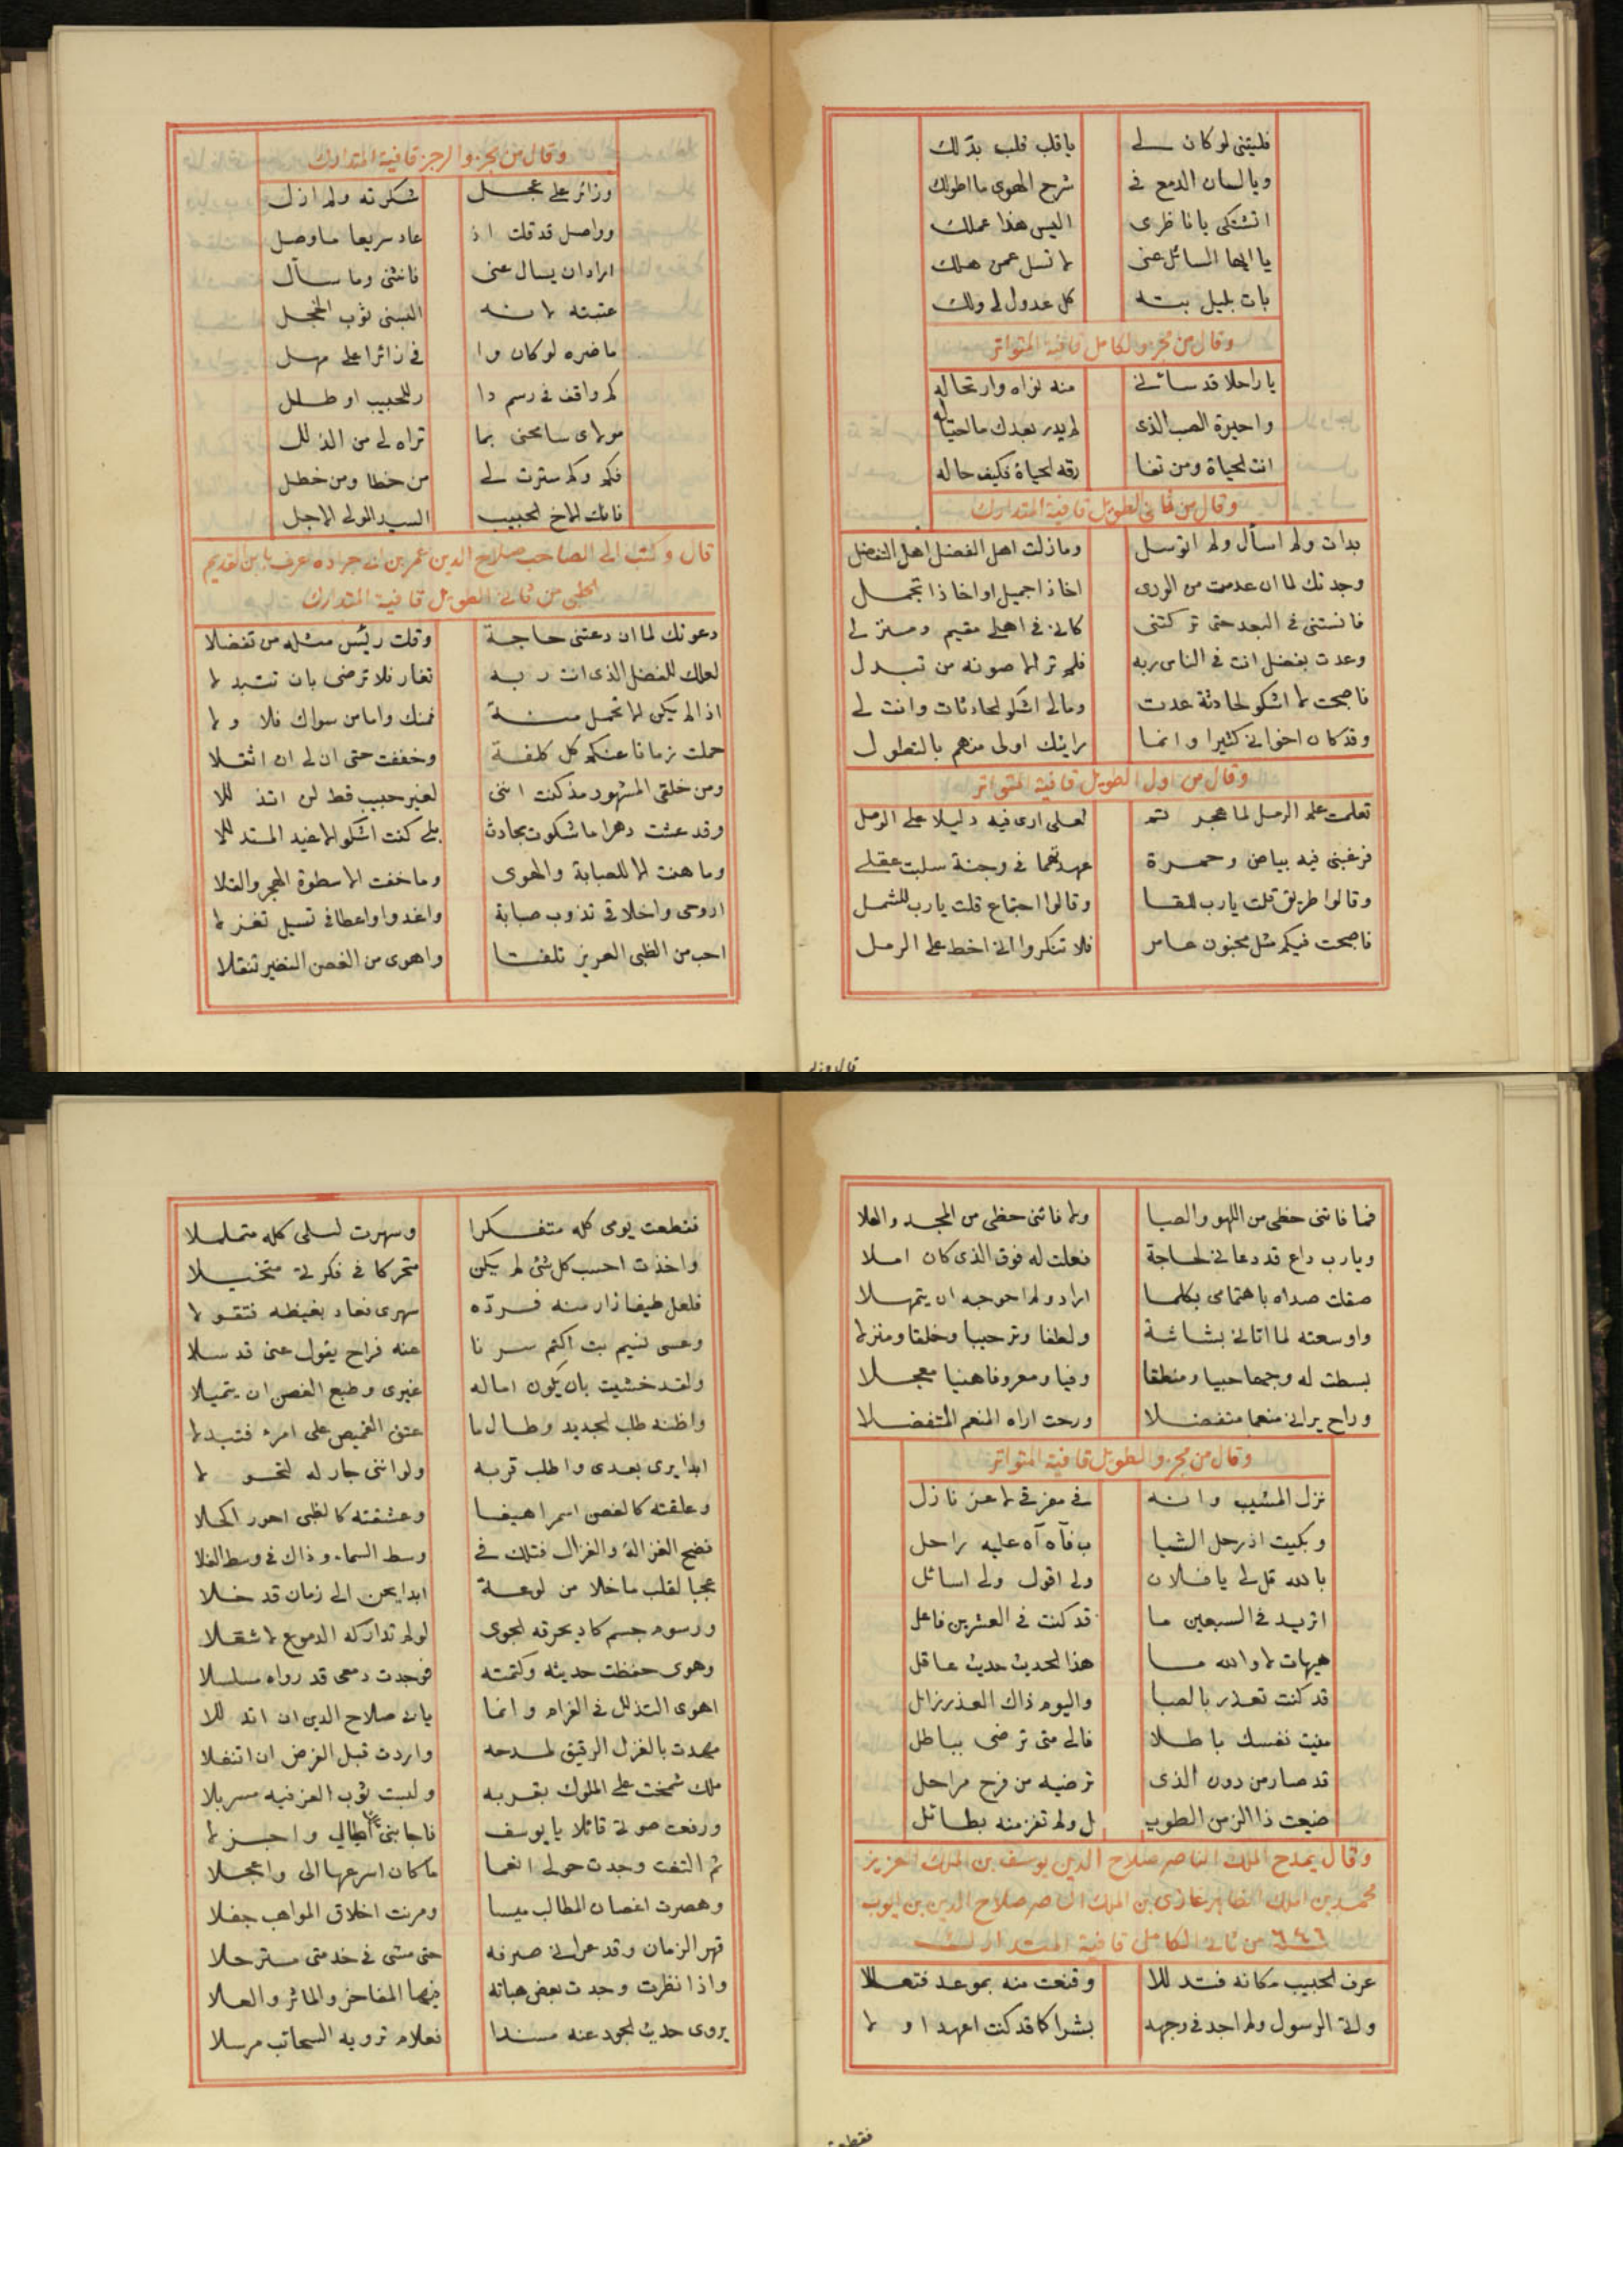 فليتنى لو كان لے   يا قلب قلب بدلك
ويا لسان الدمع فے   شرح الهوى ما اطولك
اتشتكى يا ناظرى   اليس هذا عملك
يا ايها السائل عنى   لا تسل عمن هلك
بات بليل بته   كل عدول لے ولك
وقال من مجزو الكامل قافية المتواتر
يا راحلا قد سائنى   منه نواه وارتحاله
واحيرة الصب الذى   لم يدر بعدك ما احتياله
انت الحياة ومن تفا   رقه الحياة فكيف حاله
وقال من ثانى الطويل قافية المتدارك
بدات ولم اسأل ولم اتوسل   وما زلت اهل الفضل اهل التفضل
وجدتك لما ان عدمت من الورى   اخا ذا جميل او اخا ذا تجمل
فانستنى فى البعد حتى تركتنى   كانى فى اهلے مقيم ومنزلے
وعدت بفضل انت فى الناس ربه   فلم تر الا صونه من تبدل
فاصبحت لا اشكو لحادثة عدت   ومالے اشكو الحادثات وانت لے
وقد كان اخوانى كثيرا وانما   رايتك اولى منهم بالتطول
وقال من اول الطويل قافية المتواتر
تعلمت علم الرمل لما هجرتم   لعلى ارى فيه دليلا على الوصل
فرغبنى فيه بياض وحمرة   عهدتهما فى وجنة سلبت عقلے
وقالوا طريق قلت يا رب للقا   وقالوا اجتماع قلت يا رب للشمل
فاصبحت فيكم مثل مجنون عامر   فلا تنكروا انى اخط على الرمل
وقال من مجزو الرجز قافية المتدارك
وزائر على عجل   شكرته ولم ازل
وواصل قد قلت اذ   عاد سريعا ما وصل
اراد ان يسال عنى   فانثنى وما سأل
عتبته لانه   البسنى ثوب الخجل
ما ضره لو كان وا   فى زائرا على مهل
كم واقف فى رسم دا   ر للحبيب او طلل
مولاى سامحنى بما   تراه لے من الذلل
فكم وكم سترت لے   من خطا ومن خطل
فانك الاخ الحبيب   السيد المولى الاجل
قال وكتب الى الصاحب صلاح الدين عمر بن ابى جراده عرف بابن العديم
الحلبى من ثانى الطويل قافية المتدارك
دعوتك لما ان دعتنى حاجة   وقلت رئيس مثله من تفضلا
لعلك للفضل الذى انت ربه   تغار فلا ترضى بان تتبدلا
اذا لم يكن الا تحمل منة   فمنك واما من سواك فلا ولا
حملت زمانا عنكم كل كلفة   وخففت حتى ان لى ان اثقلا
ومن خلقى المشهور مذ كنت اننى   لغير حبيب قط لن اتذللا
وقد عشت دهرا ما شكوت بحادث   بلى كنت اشكو الاغيد المتدللا
وما هنت الا للصبابة والهوى   وما خفت الا سطوة الهجر والقلا
اروح واخلاقى تذوب صبابة   واغدوا واعطافى تسيل تغزلا
احب من الظبى الغرير تلفتا   واهوى من الغصن النضير تنقلا
فما فاتنى حظى من اللهو والصبا   ولا فاتنى حظى من المجد والعلا
ويا رب داع قد دعانى لحاجة   فعلت له فوق الذى كان املا
صقلت صداه باهتمامى بكلما   اراد ولم احوجه ان يتمهلا
واوسعته لما اتانى بشاشة   ولطفا وترحيبا وخلقا ومنزلا
بسطت له وجها حييا ومنطقا   وفيا ومعروفا هنيا معجلا
وراح يرانى منعما متفضلا   ورحت اراه المنعم المتفضلا
وقال من مجزو الطويل قافية المتواتر
نزل المشيب وانه   فى مفرقى لاعز نازل
وبكيت اذ رحل الشبا   ب فآه آه عليه راحل
بالله قل لى يا فلان   ولى اقول ولى اسائل
اتريد فى السبعين ما   قد كنت فى العشرين فاعل
هيهات لا والله ما   هذا الحديث حديث عاقل
قد كنت تعذر بالصبا   واليوم ذاك العذر زائل
منيت نفسك باطلا   فالى متى ترضى بباطل
قد صار من دون الذى   ترضيه من فرح مراحل
ضيعت ذا الزمن الطويـ   ـل ولم تفز منه بطائل
وقال يمدح الملك الناصر صلاح الدين يوسف بن الملك العزيز
محمد بن الملك الظاهر غازى بن الملك الناصر صلاح الدين بن ايوب
سنة ٦٤٦ من ثانى الكامل قافية المتدارك
عرف الحبيب مكانه فتدللا   وقنعت منه بموعد فتعللا
واتى الرسول ولم اجد فى وجهه   بشرا كما قد كنت اعهد اولا
فقطعت يومى كله متفكرا   وسهرت ليلى كله متململا
واخذت احسب كل شئ لم يكن   متحركا فى فكرتى متخيلا
فلعل طيفا زار منه فرده   سهرى فعاد بغيظه فتقولا
وعسى نسيم بت اكتم سرنا   عنه فراح يقول عنى قد سلا
ولقد خشيت بان يكون اماله   غيرى وطبع الغصن ان يتميلا
واظنه طلب الجديد وطالما   عتق القميص على امرء فتبدلا
ابدا يرى بعدى واطلب قربه   ولو اننى جار له لتحولا
وعلقته كالغصن اسمر اهيفا   وعشقته كالظبى احور اكحلا
فضح الغزالة والغزال فتلك فى   وسط السماء وذاك فى وسط الفلا
عجبا لقلب ما خلا من لوعة   ابدا يحن الى زمان قد خلا
ورسوم جسم كاد يحرقه الجوى   لو لم تداركه الدموع لاشعلا
وهوى حفظت حديثه وكتمته   فوجدت دمعى قد رواه مسلسلا
اهوى التذلل فى الغرام وانما   يابى صلاح الدين ان اتذللا
مهدت بالغزل الرقيق لمدحه   واردت قبل الفرض ان اتنفلا
ملك شمخت على الملوك بقربه   ولبست ثوب العز فيه مسربلا
ورفعت صوتى قائلا يا يوسف   فاجابنى
ثم التفت وجدت حولى انعما   ما كان اسرعها الى واعجلا
وهصرت اغصان المطالب ميسا   ومريت اخلاق المواهب جفلا
قهر الزمان وقد عرانى صرفه   حتى مشى فى خدمتى مترجلا
واذا نظرت وجدت بعض هباته   فيها المفاخر والمآثر والعلا
يروى حديث الجود عنه مسندا   فعلام ترويه السحائب مرسلا